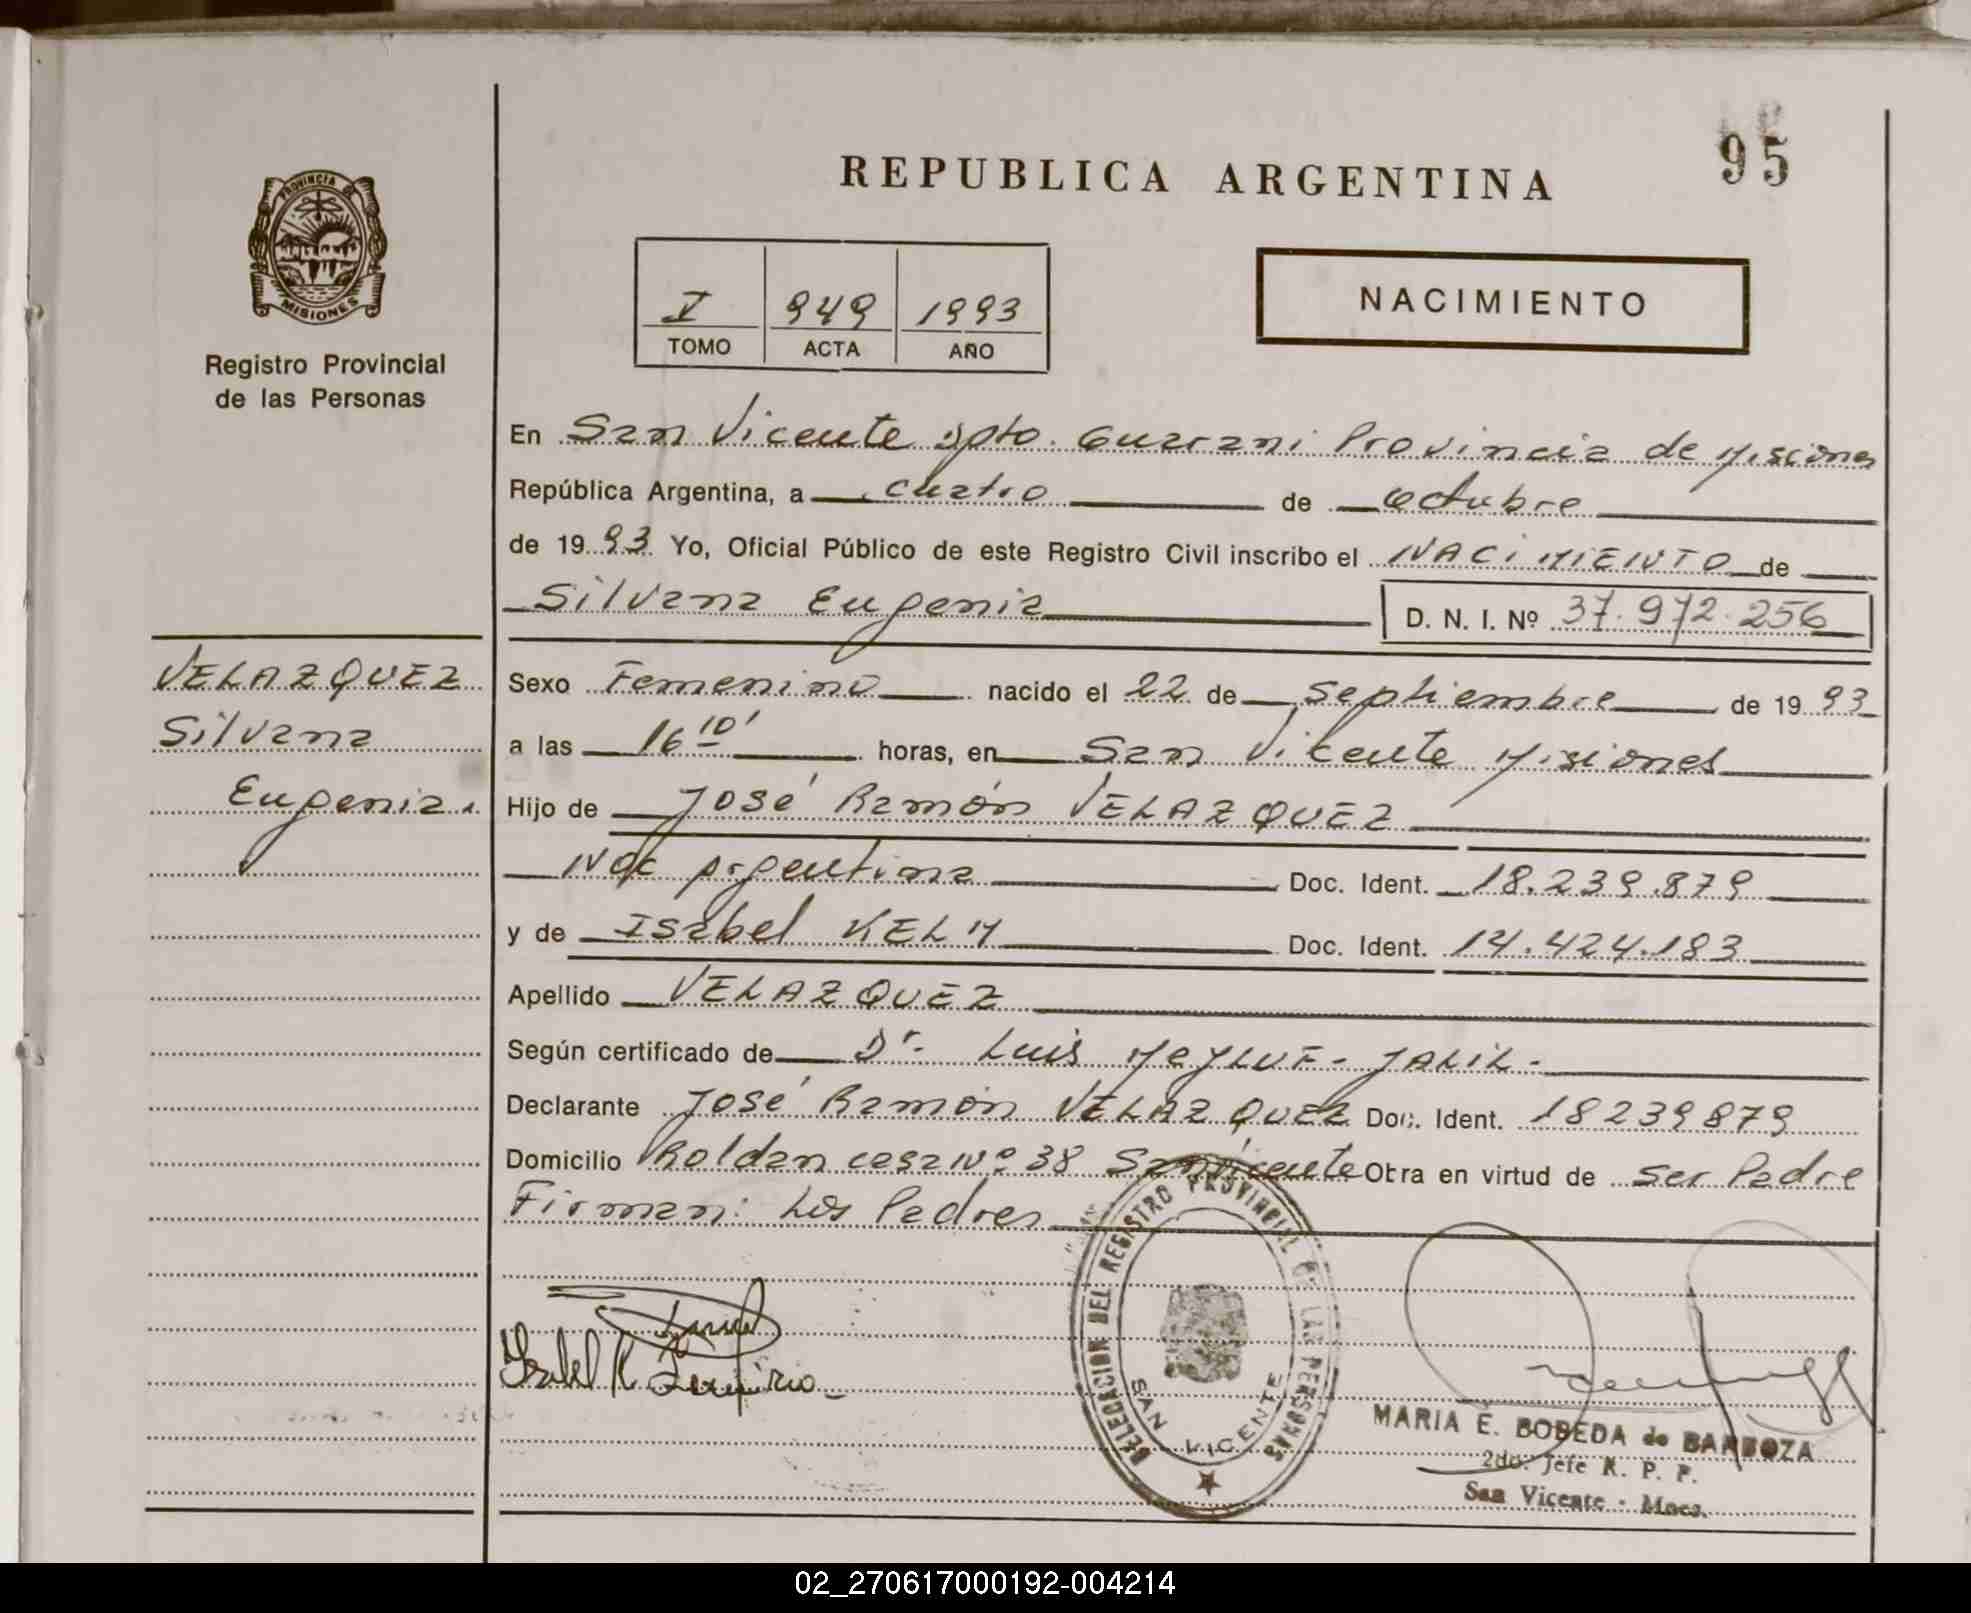 95
REPUBLICA ARGENTINA
PROVINCIA DE
MISIONES
Registro Provincial
de las Personas
I 949 1993
TOMO ACTA AÑO
NACIMIENTO
En San Vicente Dpto. Guarani Provincia de Misiones
República Argentina, a cuatro de Octubre
de 1993 Yo, Oficial Público de este Registro Civil inscribo el NACIMIENTO de
Silvana Eugenia D. N. I. Nº 37.972.256
VELAZQUEZ
Silvana
Eugenia.
Sexo Femenino nacido el 22 de Septiembre de 1993
a las 16 10' horas, en San Vicente Misiones
Hijo de José Ramón VELAZQUEZ
Nac Argentina Doc. Ident. 18.239.879
y de Isabel KELM Doc. Ident. 14.424.183
Apellido VELAZQUEZ
Según certificado de Dr. Luis JALIL.
Declarante José Ramón VELAZQUEZ Doc. Ident. 18239879
Domicilio Roldan casa Nº 38 San Vicente Obra en virtud de ser Padre
Firman: Los Padres
Isabel K
DELEGACION DEL REGISTRO PROVINCIAL DE LAS PERSONAS
SAN VICENTE
MARIA E. BOBEDA de BARBOZA
2do. Jefe R. P. P.
San Vicente - Mnes.
02_270617000192-004214